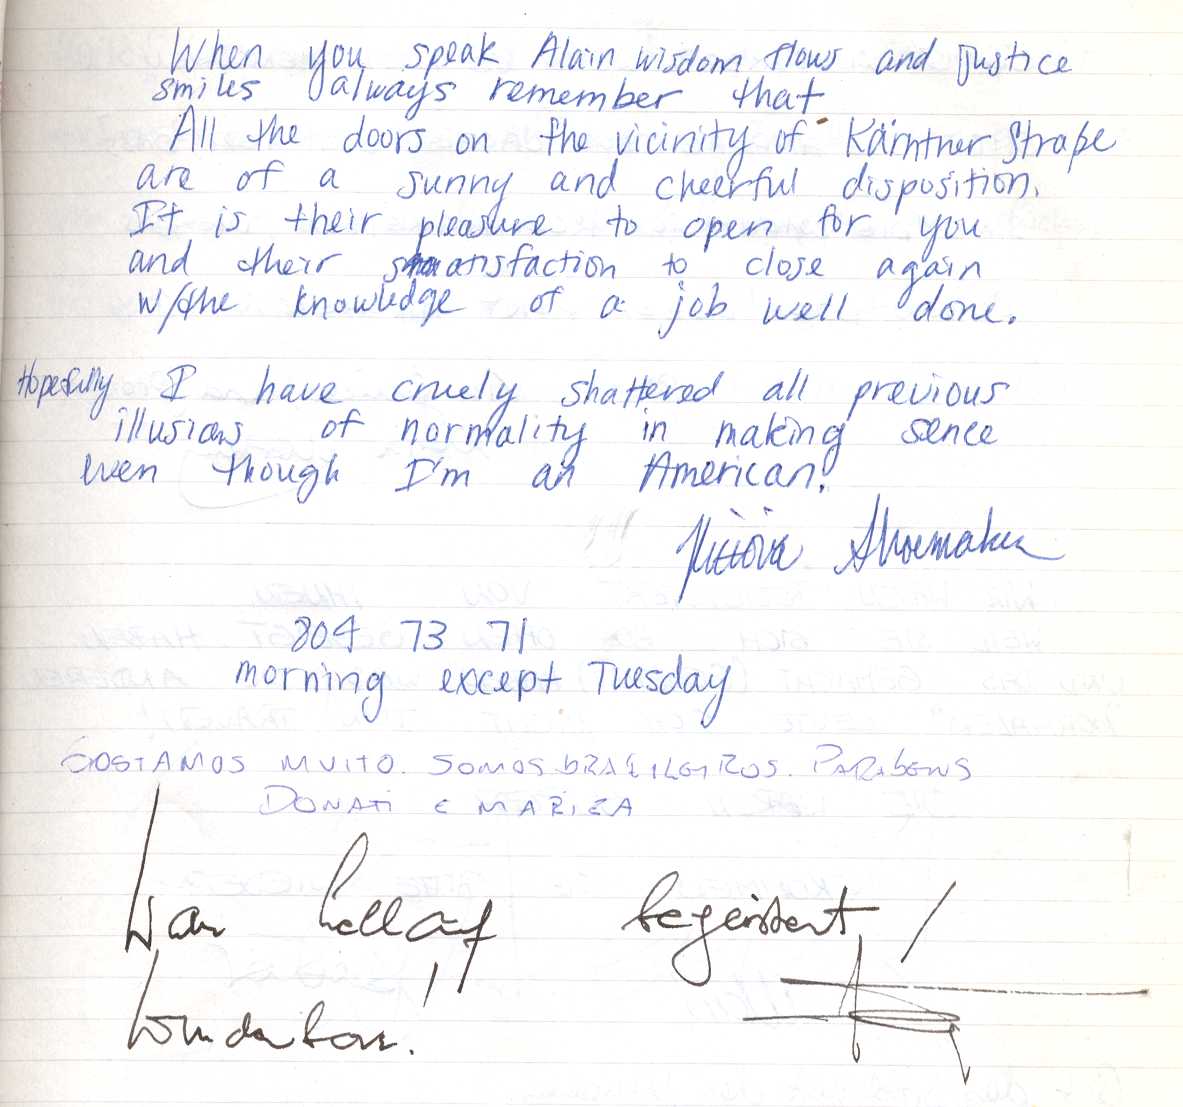 When you speak Alain wisdom flows and Justice
smiles always remember that
All the doors on the vicinity of Kärntner Straße
are of a sunny and cheerful disposition.
It is their pleasure to open for you
and their satisfaction to close again
w/the knowledge of a job well done.
Hopefully I have cruely shattered all previous
illusions of normality in making sence
even though I'm an American!
Shoemaker
804 73 71
morning except Tuesday
GOSTAMOS MUITO. SOMOS BRASILEIROS. PARABENS
DONATI E MARIZA
War hellauf begeistert!
Wunderbar!